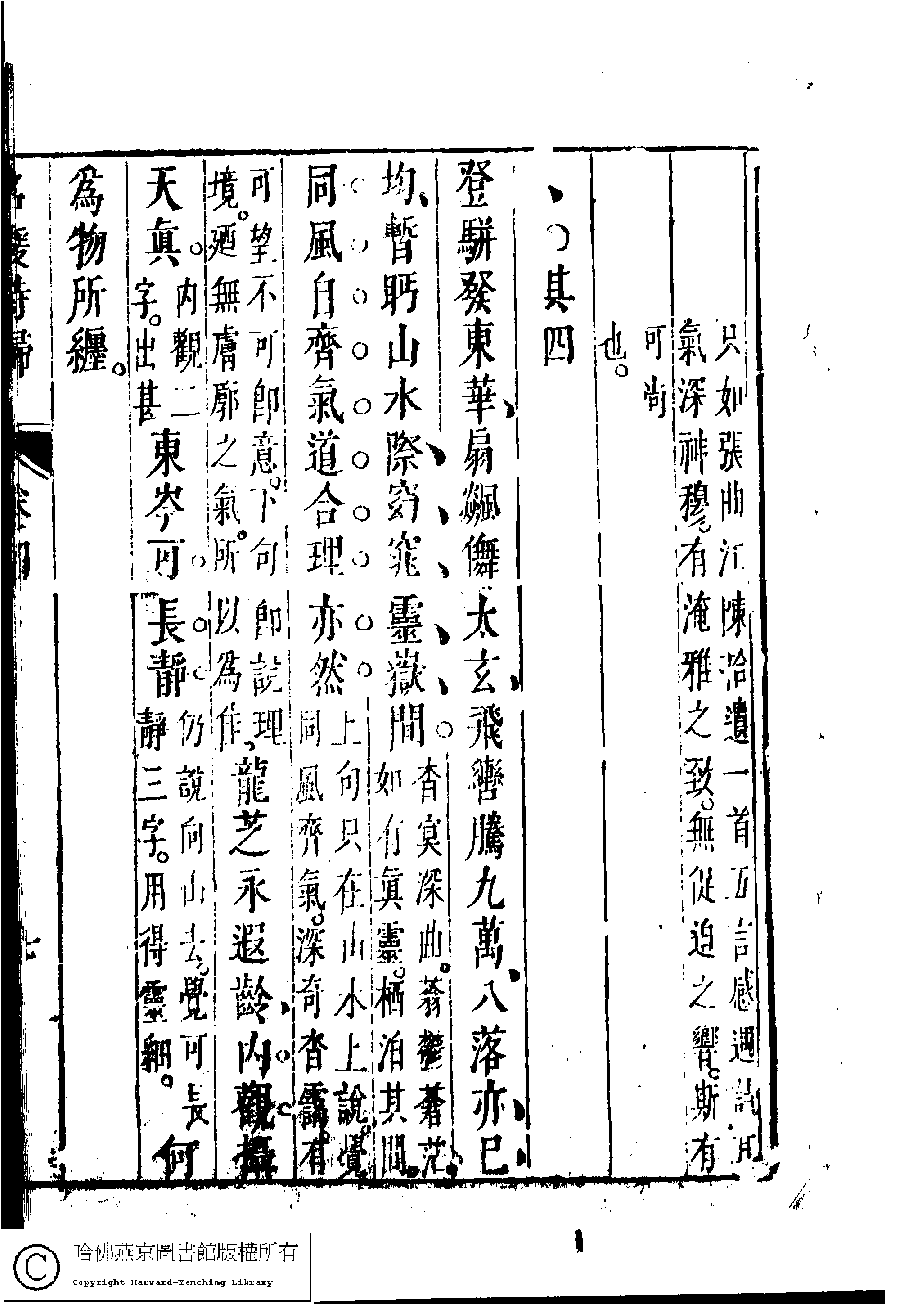 只如張曲江陳拾遺一首五言感遇詩其
氣深神穆有淹雅之致無促迫之響斯有
可尚
也
其四
登駢發東華扇飆儛太玄飛轡騰九萬八落亦已
均暫眄山水際窈窕靈嶽間
杳冥深曲蓊鬱蒼茫
如有真靈栖泊其間
同風自齊氣道合理亦然
上句只在山水上說覺
同風齊氣深奇杳靄有
可望不可卽意下句卽說理
境廼無膚廓之氣所以為佳
龍芝永遐齡內觀攝
天眞
內觀二
字出甚
東岑可長靜
仍說向山去覺可長
靜三字用得靈細
何
為物所纏
名媛詩歸
卷四
七
哈佛燕京圖書館版權所有
Copyright Harvard-Yenching Library